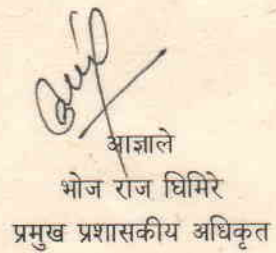 आज्ञाले
भोज राज घिमिरे
प्रमुख प्रशासकीय अधिकृत